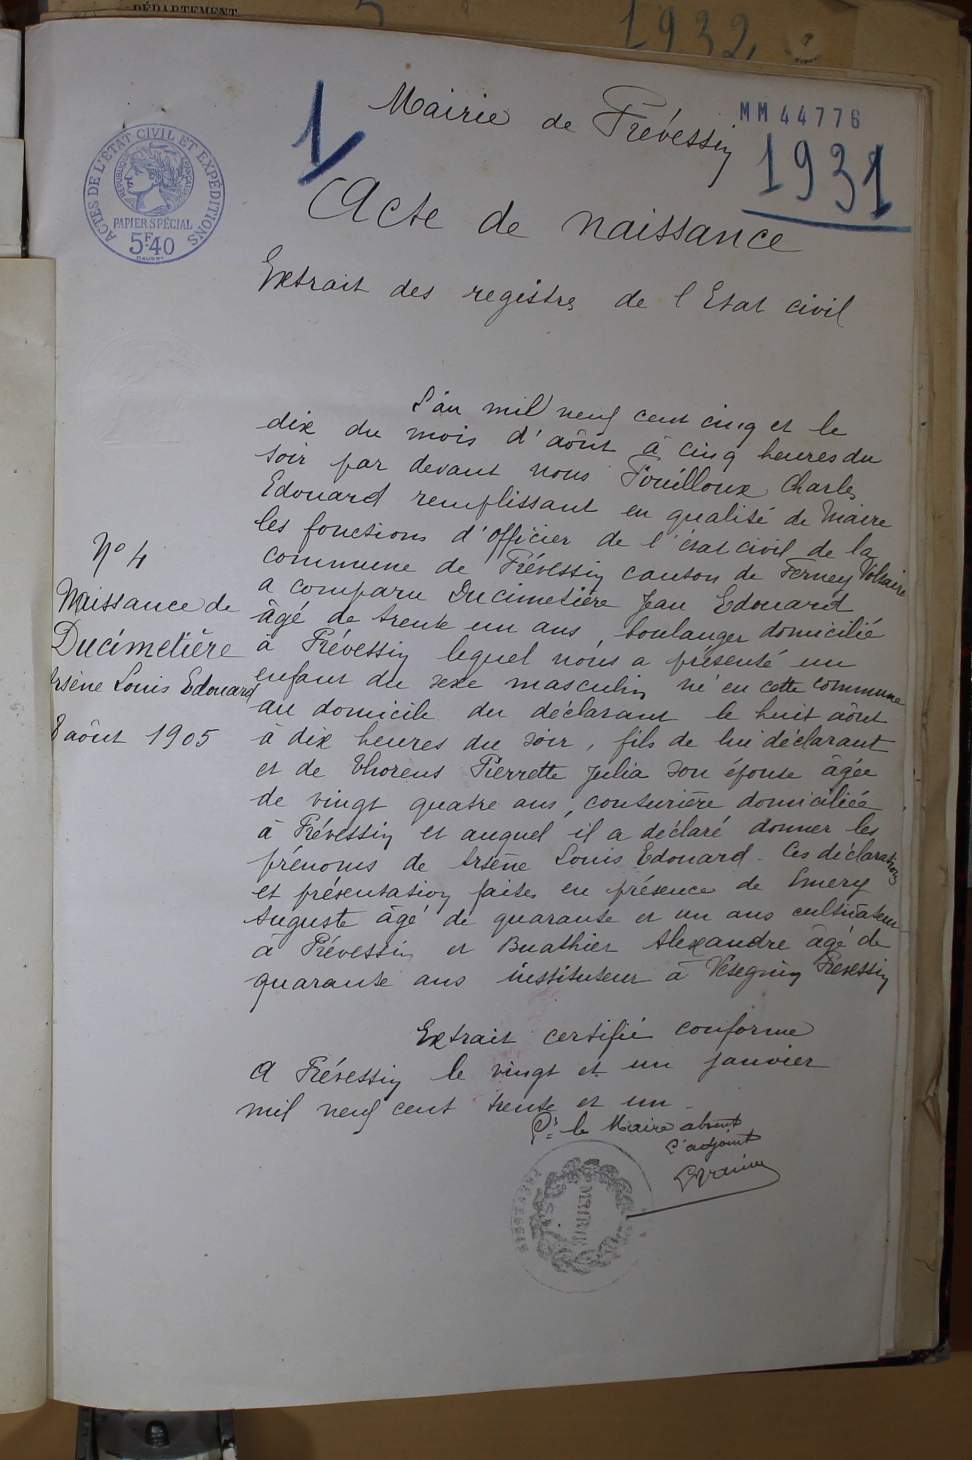 DÉPARTEMENT
1932
1
Mairie de Prévessin
MM 44776
1931
ACTES DE L'ÉTAT CIVIL ET EXPÉDITIONS
RÉPUBLIQUE FRANÇAISE
PAPIER SPÉCIAL
5F40
Acte de naissance
Extrait des registres de l'Etat civil
L'an mil neuf cent cinq et le
dix du mois d'août à cinq heures du
soir par devant nous Fouilloux Charles
Edouard remplissant en qualité de Maire
les fonctions d'officier de l'état civil de la
commune de Prévessin canton de Ferney Voltaire
a comparu Ducimetière Jean Edouard
âgé de trente un ans, boulanger domicilié
à Prévessin lequel nous a présenté un
enfant du sexe masculin né en cette commune
au domicile du déclarant le huit août
à dix heures du soir, fils de lui déclarant
et de Thorens Pierrette Julia son épouse âgée
de vingt quatre ans, couturière domiciliée
à Prévessin et auquel il a déclaré donner les
prénoms de Arsène Louis Edouard. Ces déclaration
et présentation faites en présence de Emery
Auguste âgé de quarante et un ans cultivateur
à Prévessin et Buathier Alexandre âgé de
quarante ans instituteur à Vésegnin Prévessin
N° 4
Naissance de
Ducimetière
Arsène Louis Edouard
8 août 1905
Extrait certifié conforme
A Prévessin le vingt et un janvier
mil neuf cent trente et un
Pr le Maire absent
L'adjoint
MAIRIE
PREVESSIN